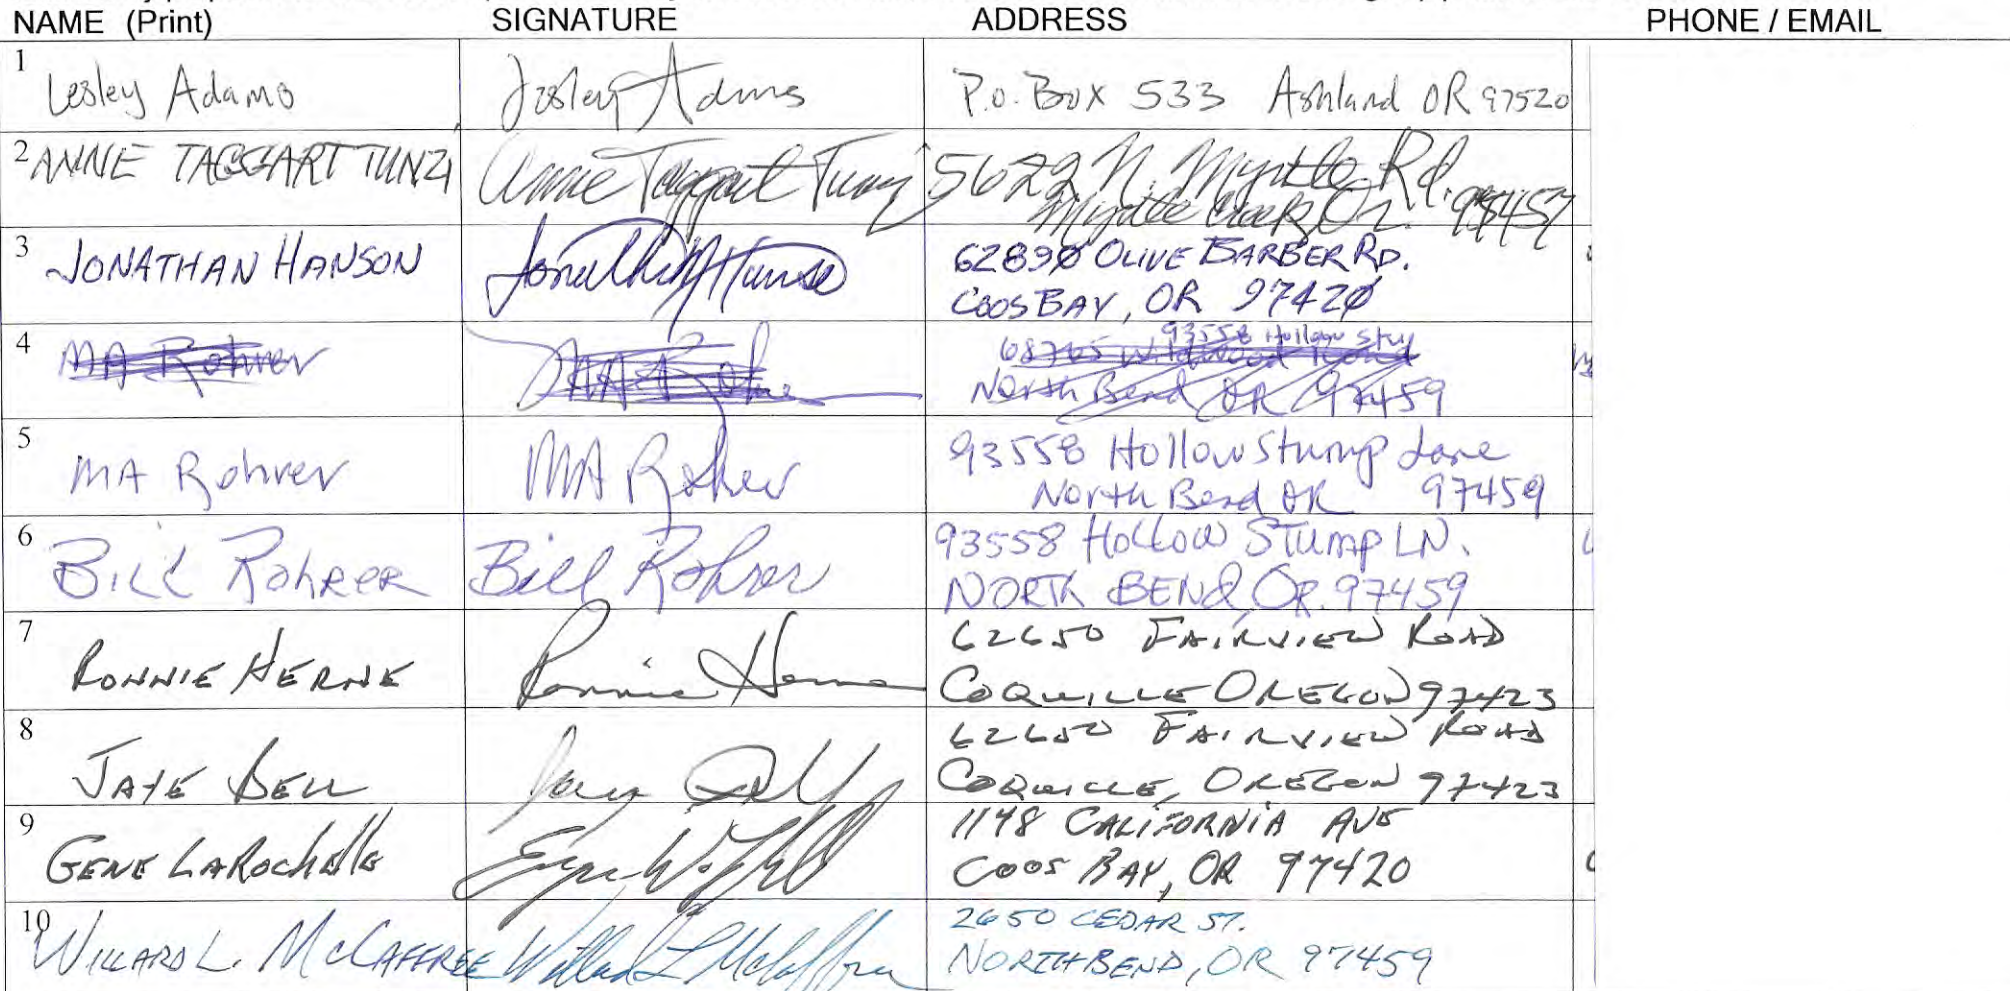 NAME (Print) SIGNATURE ADDRESS PHONE / EMAIL
1 Lesley Adams Lesley Adams P.O. Box 533 Ashland OR 97520
2 ANNE TAGGART TUNZI Anne Taggart Tunzi 5622 N. Myrtle Rd.
Myrtle Creek Or. 97457
3 JONATHAN HANSON Jonathan Hanson 62890 OLIVE BARBER RD.
COOS BAY, OR 97420
93558 Hollow Stu
4 MA Rohrer MA Rohrer 68765 Wildwood Road
North Bend OR 97459
5 MA Rohrer MA Rohrer 93558 Hollow Stump Lane
North Bend OR 97459
6 BILL ROHRER Bill Rohrer 93558 HOLLOW STUMP LN.
NORTH BEND, OR. 97459
7 RONNIE HERNE Ronnie Herne 62650 FAIRVIEW ROAD
COQUILLE OREGON 97423
8 JAYE BELL Jaye Bell 62650 FAIRVIEW ROAD
COQUILLE, OREGON 97423
9 GENE LAROCHELLE 1148 CALIFORNIA AVE
COOS BAY, OR 97420
10 WILLARD L. MCCAFFREE Willard L McCaffree 2650 CEDAR ST.
NORTH BEND, OR 97459